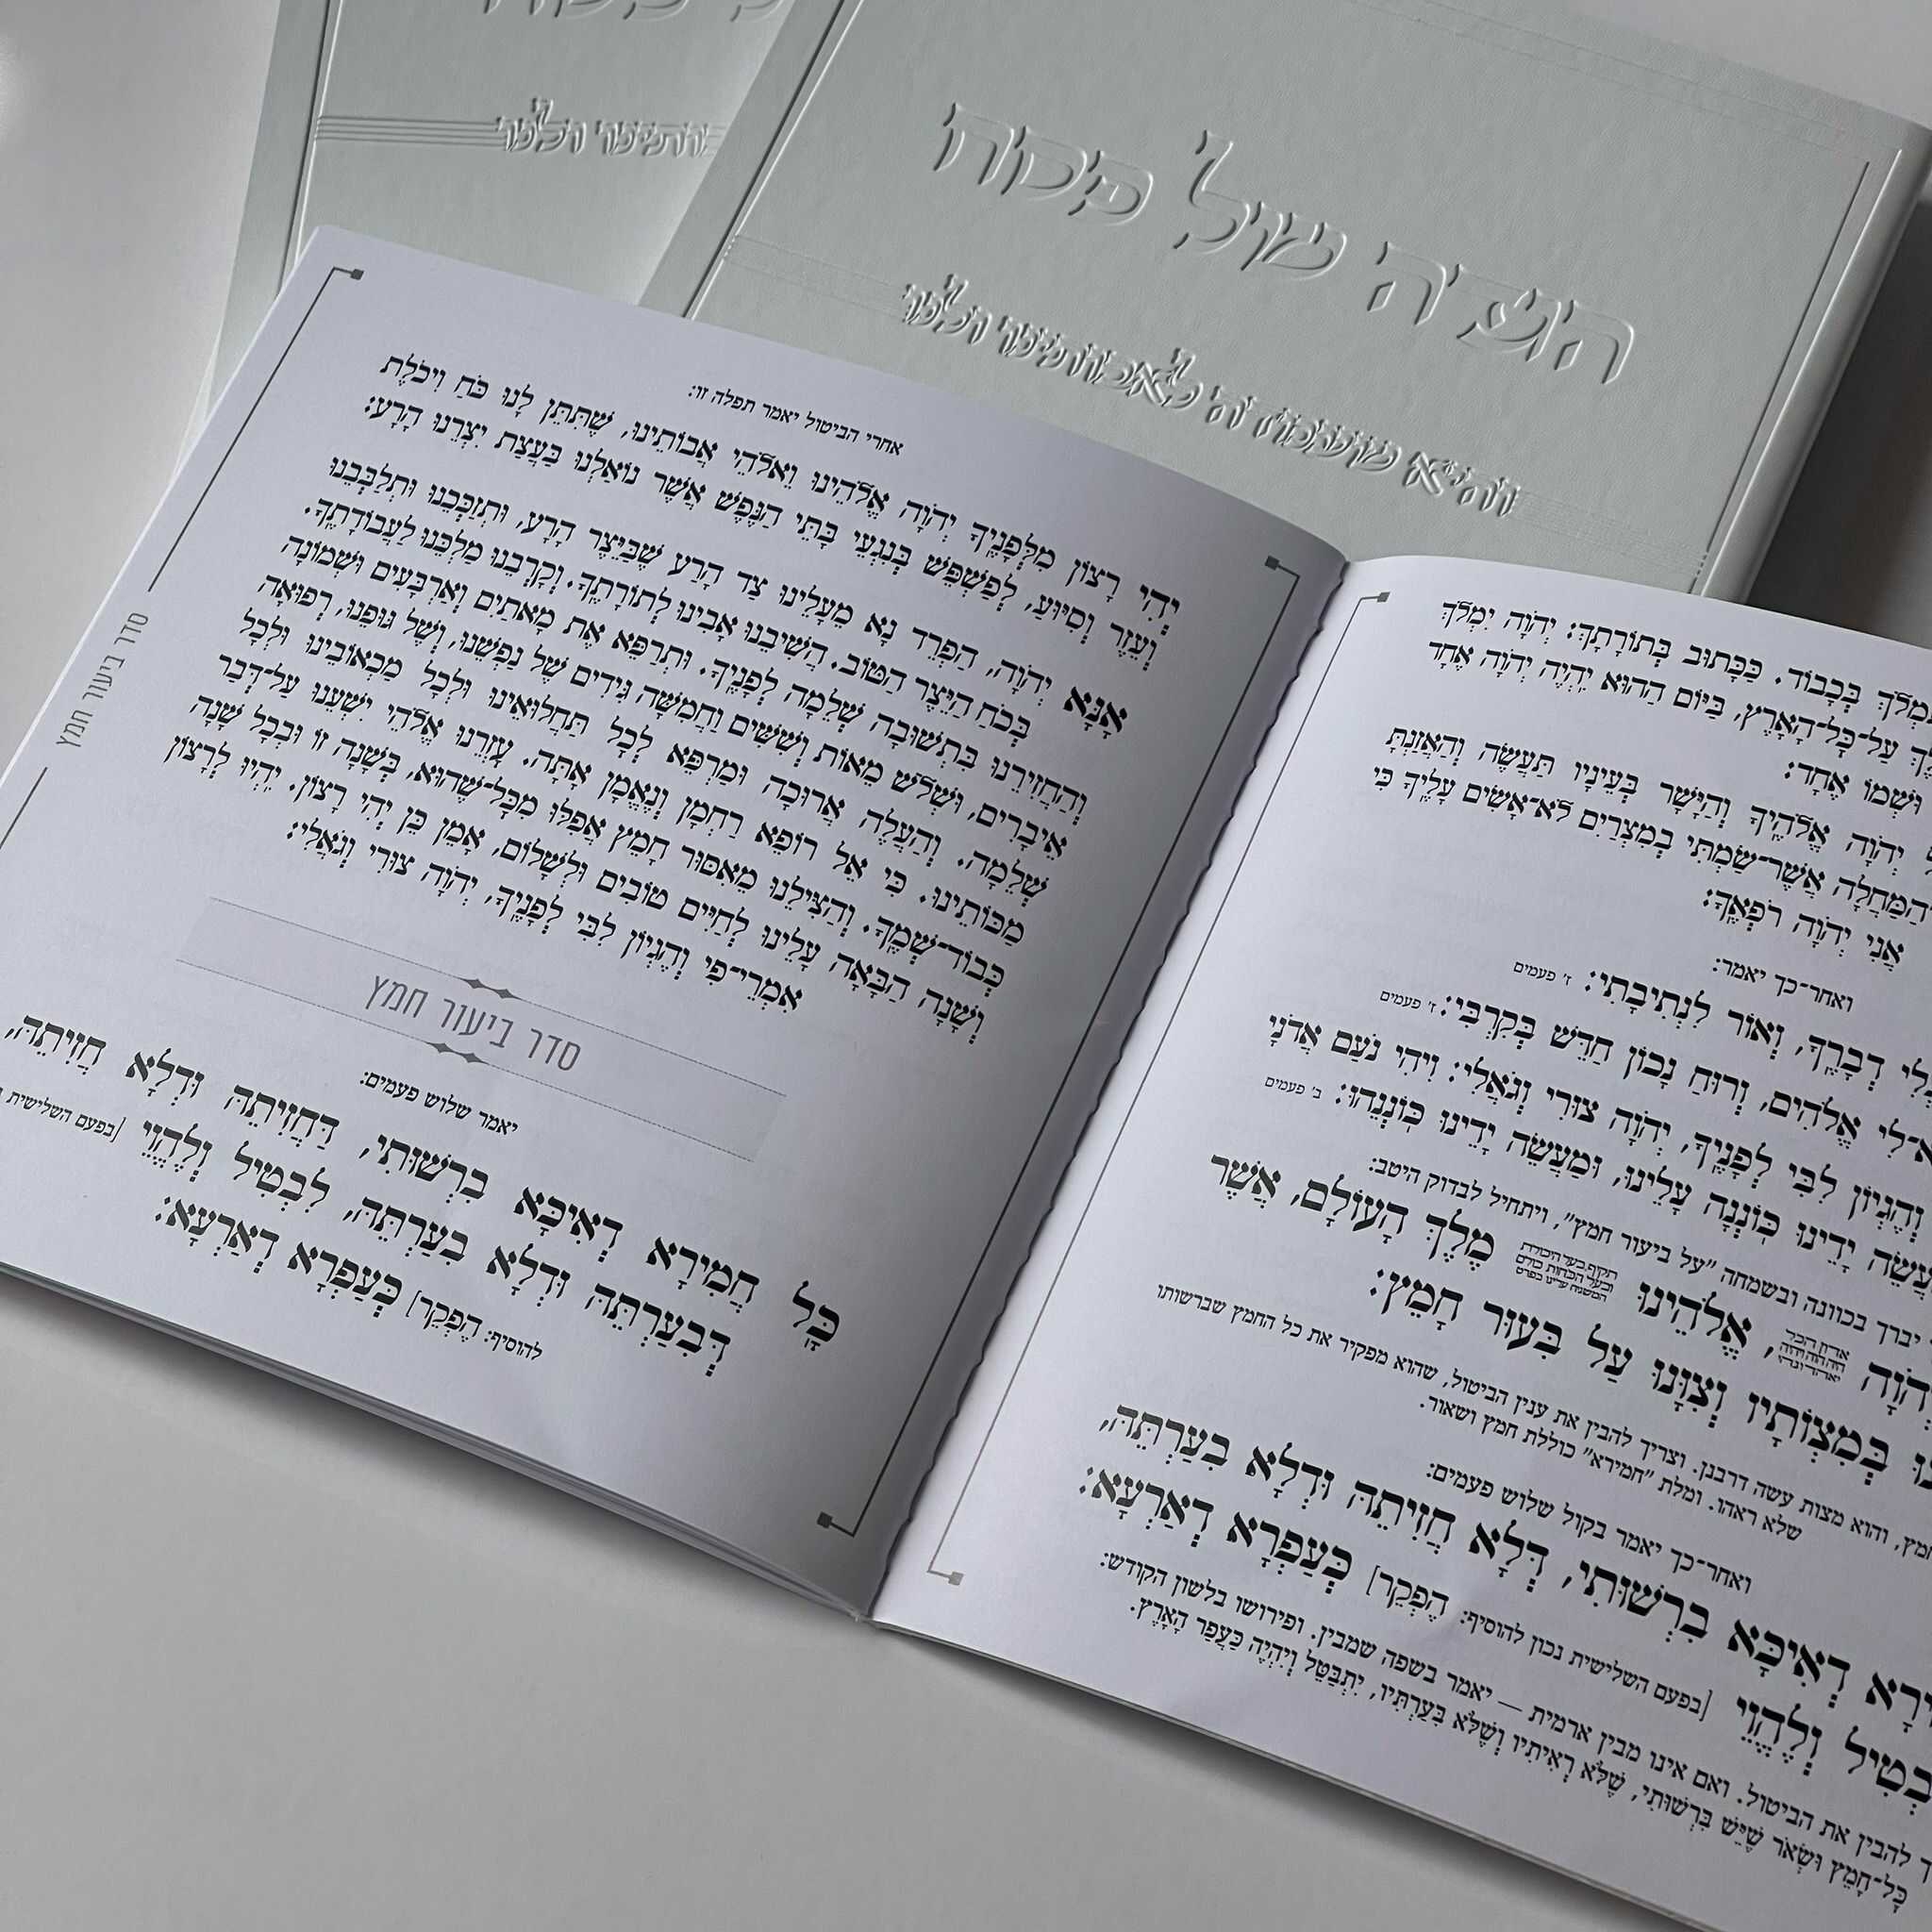 הגדה של פסח
והיא שעמדה לאבותינו ולנו
ותינו ולנו
בִּמְלֹךְ בְּכָבוֹד. כַּכָּתוּב בְּתוֹרָתָךְ: יְהֹוָה יִמְלֹךְ
עַל־כָּל־הָאָרֶץ, בַּיּוֹם הַהוּא יִהְיֶה יְהֹוָה אֶחָד
וּשְׁמוֹ אֶחָד:
יְהֹוָה אֱלֹהֶיךָ וְהַיָּשָׁר בְּעֵינָיו תַּעֲשֶׂה וְהַאֲזַנְתָּ
הַמַּחֲלָה אֲשֶׁר־שַׂמְתִּי בְמִצְרַיִם לֹא־אָשִׂים עָלֶיךָ כִּי
אֲנִי יְהֹוָה רֹפְאֶךָ:
ואחר־כך יאמר:
דְבָרֶךָ, וְאוֹר לִנְתִיבָתִי: ז' פעמים
לִי אֱלֹהִים, וְרוּחַ נָכוֹן חַדֵּשׁ בְּקִרְבִּי: ז' פעמים
וְהֶגְיוֹן לִבִּי לְפָנֶיךָ, יְהֹוָה צוּרִי וְגֹאֲלִי: וִיהִי נֹעַם אֲדֹנָי
יָדֵינוּ כּוֹנְנָה עָלֵינוּ, וּמַעֲשֵׂה יָדֵינוּ כּוֹנְנֵהוּ: ב' פעמים
יברך בכוונה ובשמחה "על ביעור חמץ", ויתחיל לבדוק היטב:
אֱלֹהֵינוּ מֶלֶךְ הָעוֹלָם, אֲשֶׁר
בְּמִצְוֹתָיו וְצִוָּנוּ עַל בִּעוּר חָמֵץ:
והוא מצות עשה דרבנן. וצריך להבין את ענין הביטול, שהוא מפקיר את כל החמץ שברשותו
שלא ראהו. ומלת "חמירא" כוללת חמץ ושאור.
ואחר־כך יאמר בקול שלוש פעמים:
דְאִיכָּא בִרְשׁוּתִי, דְּלָא חֲזִיתֵהּ וּדְלָא בִעַרְתֵּהּ,
וְלֶהֱוֵי [בפעם השלישית נכון להוסיף: הֶפְקֵר] כְּעַפְרָא דְאַרְעָא:
להבין את הביטול. ואם אינו מבין ארמית — יאמר בשפה שמבין. ופירושו בלשון הקודש:
כָּל־חָמֵץ וּשְׂאֹר שֶׁיֵּשׁ בִּרְשׁוּתִי, שֶׁלֹּא רְאִיתִיו וְשֶׁלֹּא בִעַרְתִּיו, יִתְבַּטֵּל וְיִהְיֶה כַּעֲפַר הָאָרֶץ.
אחרי הביטול יאמר תפלה זו:
יְהִי רָצוֹן מִלְּפָנֶיךָ יְהֹוָה אֱלֹהֵינוּ וֵאלֹהֵי אֲבוֹתֵינוּ, שֶׁתִּתֵּן לָנוּ כֹּחַ וִיכֹלֶת
וְעֵזֶר וְסִיּוּעַ, לְפַשְׁפֵּשׁ בְּנִגְעֵי בָּתֵּי הַנֶּפֶשׁ אֲשֶׁר נוֹאַלְנוּ בַּעֲצַת יִצְרֵנוּ הָרָע:
אָנָּא יְהֹוָה, הַפְרֵד נָא מֵעָלֵינוּ צַד הָרַע שֶׁבַּיֵּצֶר הָרָע, וּתְזַכְּכֵנוּ וּתְלַבְּבֵנוּ
בְּכֹחַ הַיֵּצֶר הַטּוֹב. הֲשִׁיבֵנוּ אָבִינוּ לְתוֹרָתֶךָ. וְקָרְבֵנוּ מַלְכֵּנוּ לַעֲבוֹדָתֶךָ.
וְהַחֲזִירֵנוּ בִּתְשׁוּבָה שְׁלֵמָה לְפָנֶיךָ. וּתְרַפֵּא אֶת מָאתַיִם וְאַרְבָּעִים וּשְׁמוֹנָה
אֵיבָרִים, וּשְׁלֹשׁ מֵאוֹת וְשִׁשִּׁים וַחֲמִשָּׁה גִּידִים שֶׁל נַפְשֵׁנוּ, וְשֶׁל גּוּפֵנוּ, רְפוּאָה
שְׁלֵמָה. וְהַעֲלֵה אֲרוּכָה וּמַרְפֵּא לְכָל תַּחֲלוּאֵינוּ וּלְכָל מַכְאוֹבֵינוּ וּלְכָל
מַכּוֹתֵינוּ. כִּי אֵל רוֹפֵא רַחְמָן וְנֶאֱמָן אָתָּה. עָזְרֵנוּ אֱלֹהֵי יִשְׁעֵנוּ עַל־דְּבַר
כְּבוֹד־שְׁמֶךָ. וְהַצִּילֵנוּ מֵאִסּוּר חָמֵץ אֲפִלּוּ מִכָּל־שֶׁהוּא, בְּשָׁנָה זוֹ וּבְכָל שָׁנָה
וְשָׁנָה הַבָּאָה עָלֵינוּ לְחַיִּים טוֹבִים וּלְשָׁלוֹם, אָמֵן כֵּן יְהִי רָצוֹן. יִהְיוּ לְרָצוֹן
אִמְרֵי־פִי וְהֶגְיוֹן לִבִּי לְפָנֶיךָ, יְהֹוָה צוּרִי וְגֹאֲלִי:
סדר ביעור חמץ
יאמר שלוש פעמים:
כָּל חֲמִירָא דְאִיכָּא בִרְשׁוּתִי, דַּחֲזִיתֵהּ וּדְלָא חֲזִיתֵהּ,
דְּבִעַרְתֵּהּ וּדְלָא בִעַרְתֵּהּ, לִבְטִיל וְלֶהֱוֵי [בפעם השלישית
להוסיף: הֶפְקֵר] כְּעַפְרָא דְאַרְעָא:
סדר ביעור חמץ